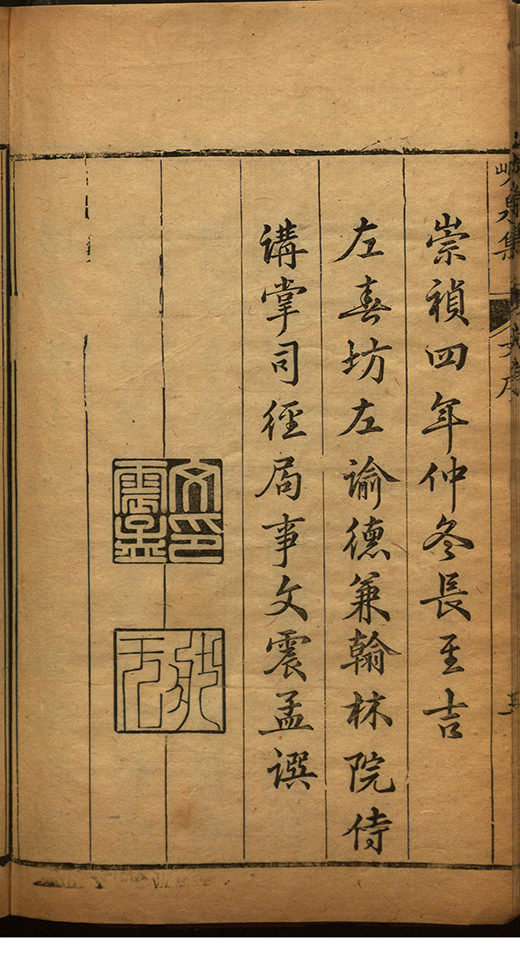 峴泉集
崇禎四年仲冬長至吉
左春坊左諭德兼翰林院侍
講掌司徑局事文震孟譔
文印震孟